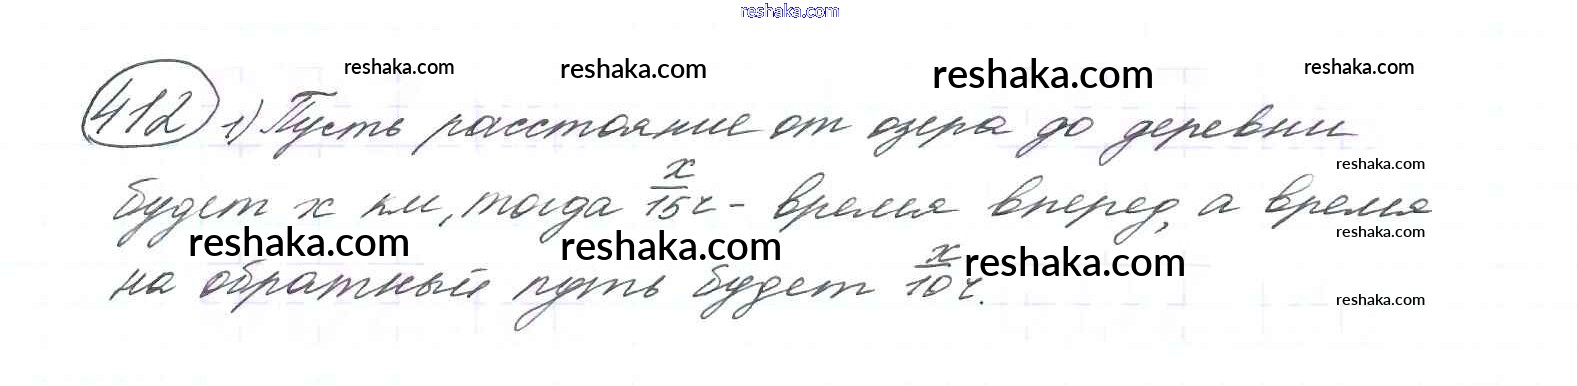 reshaka.com
reshaka.com reshaka.com reshaka.com reshaka.com
412 1) Пусть расстояние от озера до деревни
reshaka.com
будет x км, тогда x/15 ч - время вперед, а время
reshaka.com reshaka.com reshaka.com reshaka.com
на обратный путь будет x/10 ч.
reshaka.com